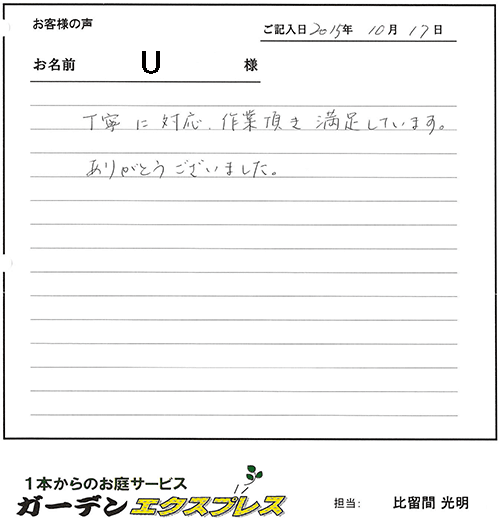 お客様の声
ご記入日 2015年 10月 17日
お名前 U 様
丁寧に対応、作業頂き満足しています。
ありがとうございました。
1本からのお庭サービス
ガーデンエクスプレス
担当: 比留間 光明